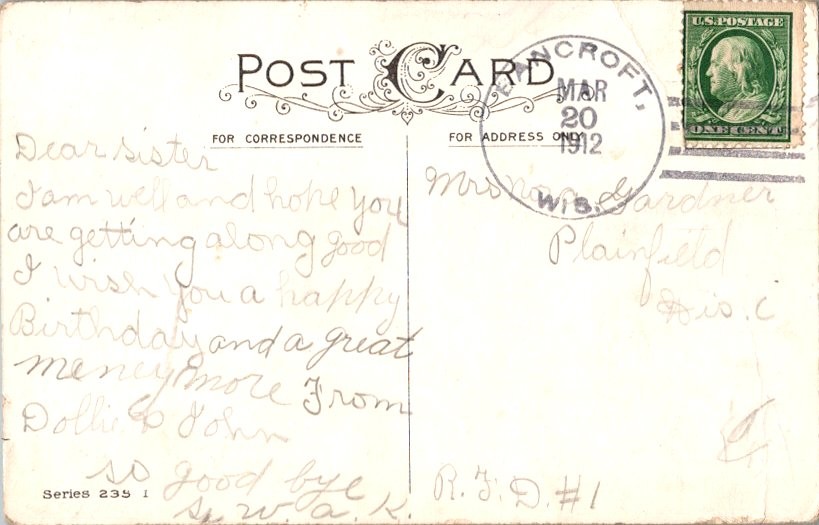 POST CARD
FOR CORRESPONDENCE
FOR ADDRESS ONLY
U.S. POSTAGE
ONE CENT
BANCROFT,
MAR
20
1912
WIS.
Dear sister
I am well and hope you
are getting along good
I wish you a happy
Birthday and a great
meney more From
Dollie & John
so good bye
S. W. a. K.
Series 235 I
Mrs Gardner
Plainfield
Wis. C
R. F. D. #1